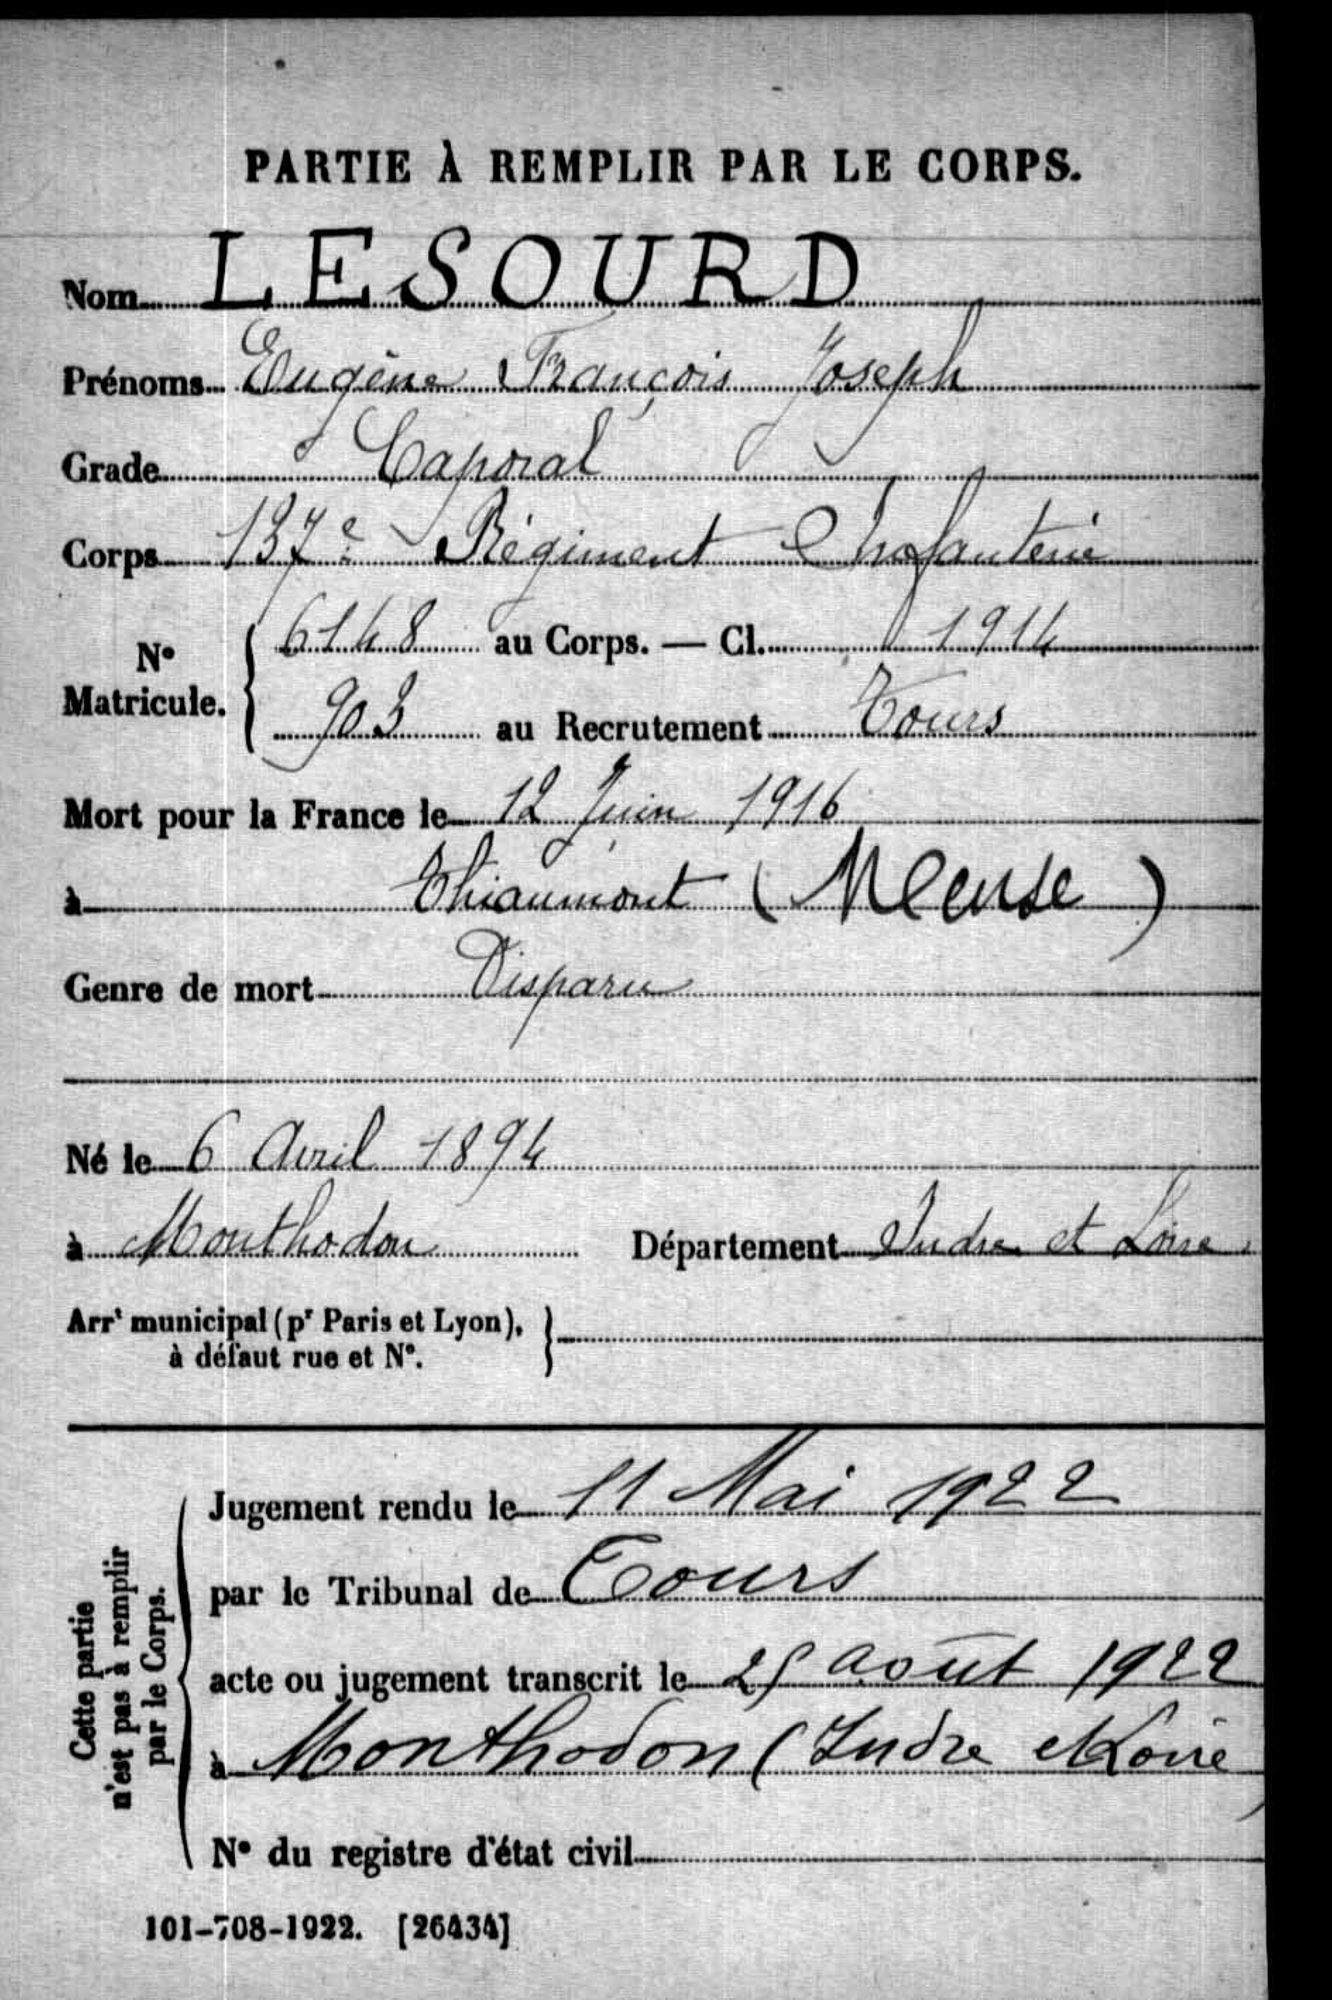 PARTIE À REMPLIR PAR LE CORPS.
Nom LESOURD
Prénoms Eugène François Joseph
Grade Caporal
Corps 137e Régiment Infanterie
N° Matricule. { 6148 au Corps. — Cl. 1914
903 au Recrutement Tours
Mort pour la France le 12 Juin 1916
à Thiaumont (Meuse)
Genre de mort Disparu
Né le 6 Avril 1894
à Monthodon Département Indre et Loire
Arrt municipal (pr Paris et Lyon), }
à défaut rue et N°.
Cette partie
n'est pas à remplir
par le Corps.
Jugement rendu le 11 Mai 1922
par le Tribunal de Tours
acte ou jugement transcrit le 25 août 1922
à Monthodon (Indre et Loire)
N° du registre d'état civil
101-708-1922. [26434]